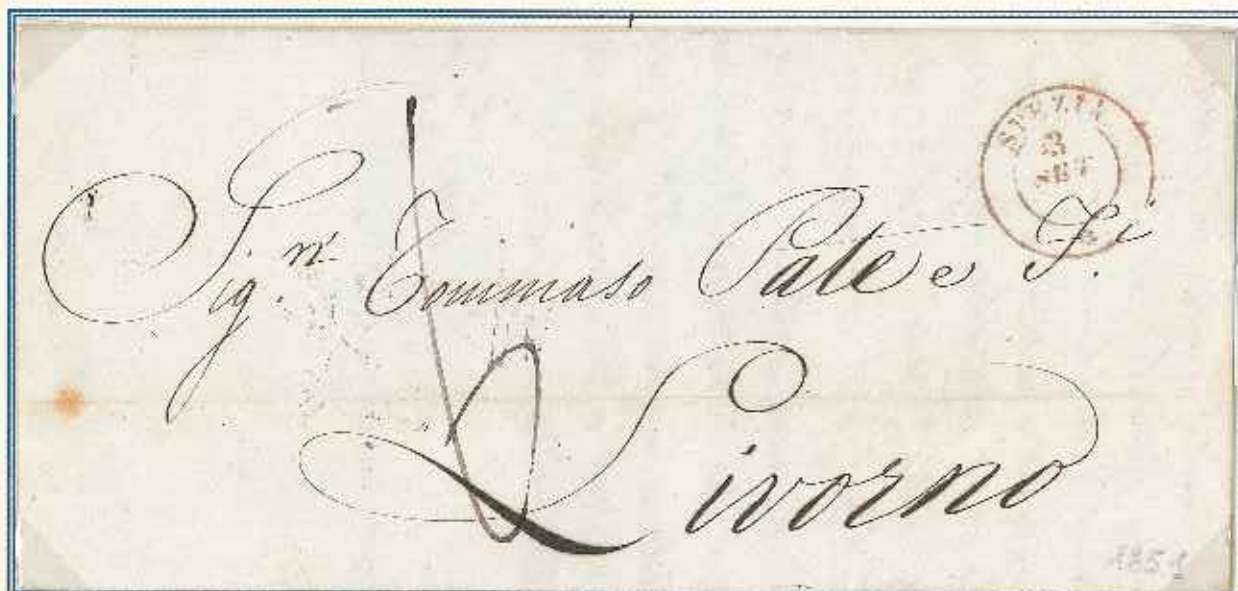 SPEZIA
3
SET
Sig.ri Tommaso Pate e F.i
6
Livorno
1851